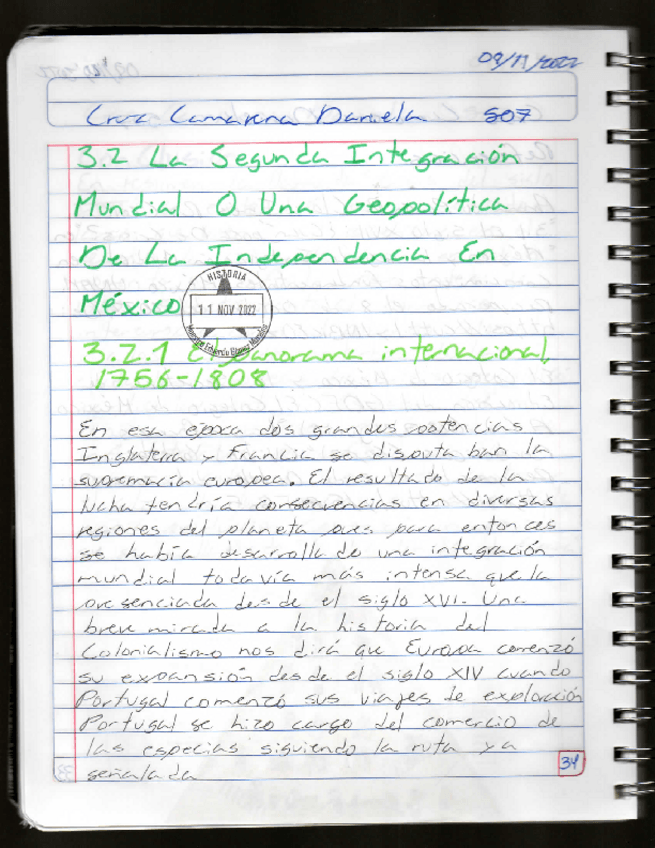 09/11/2022
Cruz Camarena Daniela 507
3.2 La Segunda Integración
Mundial O Una Geopolítica
De La Independencia En
México
HISTORIA
11 NOV 2022
3.2.1 El panorama internacional,
1756-1808
En esa epoca dos grandes potencias
Inglaterra y Francia se disputa ban la
supremacía europea. El resultado de la
lucha tendría consecuencias en diversas
regiones del planeta pues para entonces
se había desarrolla do una integración
mundial todavía más intensa que la
presenciada desde el siglo XVI. Una
breve mirada a la historia del
Colonialismo nos dirá que Europa comenzó
su expansión desde el siglo XIV cuando
Portugal comenzó sus viajes de exploración
Portugal se hizo cargo del comercio de
las especias siguiendo la ruta ya
señalada
34